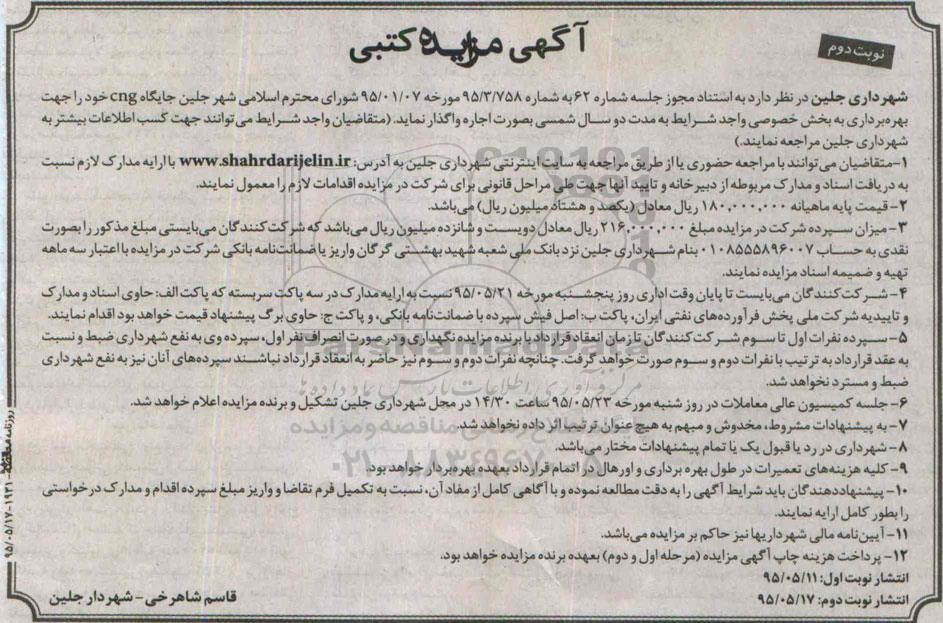 آگهی مزایده کتبی
نوبت دوم
شهرداری جلین در نظر دارد به استناد مجوز جلسه شماره ۶۲ به شماره ۹۵/۳/۷۵۸ مورخه ۹۵/۰۱/۰۷ شورای محترم اسلامی شهر جلین جایگاه cng خود را جهت
بهره‌برداری به بخش خصوصی واجد شرایط به مدت دو سال شمسی بصورت اجاره واگذار نماید. (متقاضیان واجد شرایط می‌توانند جهت کسب اطلاعات بیشتر به
شهرداری جلین مراجعه نمایند.)
۱- متقاضیان می‌توانند با مراجعه حضوری یا از طریق مراجعه به سایت اینترنتی شهرداری جلین به آدرس: www.shahrdarijelin.ir با ارایه مدارک لازم نسبت
به دریافت اسناد و مدارک مربوطه از دبیرخانه و تایید آنها جهت طی مراحل قانونی برای شرکت در مزایده اقدامات لازم را معمول نمایند.
۲- قیمت پایه ماهیانه ۱۸۰,۰۰۰,۰۰۰ ریال معادل (یکصد و هشتاد میلیون ریال) می‌باشد.
۳- میزان سپرده شرکت در مزایده مبلغ ۲۱۶,۰۰۰,۰۰۰ ریال معادل دویست و شانزده میلیون ریال می‌باشد که شرکت کنندگان می‌بایستی مبلغ مذکور را بصورت
نقدی به حساب ۰۱۰۸۵۵۵۸۹۶۰۰۷ بنام شهرداری جلین نزد بانک ملی شعبه شهید بهشتی گرگان واریز یا ضمانت‌نامه بانکی شرکت در مزایده با اعتبار سه ماهه
تهیه و ضمیمه اسناد مزایده نمایند.
۴- شرکت کنندگان می‌بایست تا پایان وقت اداری روز پنجشنبه مورخه ۹۵/۰۵/۲۱ نسبت به ارایه مدارک در سه پاکت سربسته که پاکت الف: حاوی اسناد و مدارک
و تاییدیه شرکت ملی پخش فرآورده‌های نفتی ایران، پاکت ب: اصل فیش سپرده یا ضمانت‌نامه بانکی، و پاکت ج: حاوی برگ پیشنهاد قیمت خواهد بود اقدام نمایند.
۵- سپرده نفرات اول تا سوم شرکت کنندگان تا زمان انعقاد قرارداد با برنده مزایده نگهداری و در صورت انصراف نفر اول، سپرده وی به نفع شهرداری ضبط و نسبت
به عقد قرارداد به ترتیب با نفرات دوم و سوم صورت خواهد گرفت. چنانچه نفرات دوم و سوم نیز حاضر به انعقاد قرارداد نباشند سپرده‌های آنان نیز به نفع شهرداری
ضبط و مسترد نخواهد شد.
۶- جلسه کمیسیون عالی معاملات در روز شنبه مورخه ۹۵/۰۵/۲۳ ساعت ۱۴/۳۰ در محل شهرداری جلین تشکیل و برنده مزایده اعلام خواهد شد.
۷- به پیشنهادات مشروط، مخدوش و مبهم به هیچ عنوان ترتیب اثر داده نخواهد شد.
۸- شهرداری در رد یا قبول یک یا تمام پیشنهادات مختار می‌باشد.
۹- کلیه هزینه‌های تعمیرات در طول بهره برداری و اورهال در اتمام قرارداد بعهده بهره‌بردار خواهد بود.
۱۰- پیشنهاددهندگان باید شرایط آگهی را به دقت مطالعه نموده و با آگاهی کامل از مفاد آن، نسبت به تکمیل فرم تقاضا و واریز مبلغ سپرده اقدام و مدارک درخواستی
را بطور کامل ارایه نمایند.
۱۱- آیین‌نامه مالی شهرداریها نیز حاکم بر مزایده می‌باشد.
۱۲- پرداخت هزینه چاپ آگهی مزایده (مرحله اول و دوم) بعهده برنده مزایده خواهد بود.
انتشار نوبت اول: ۹۵/۰۵/۱۱
انتشار نوبت دوم: ۹۵/۰۵/۱۷
قاسم شاهرخی - شهردار جلین